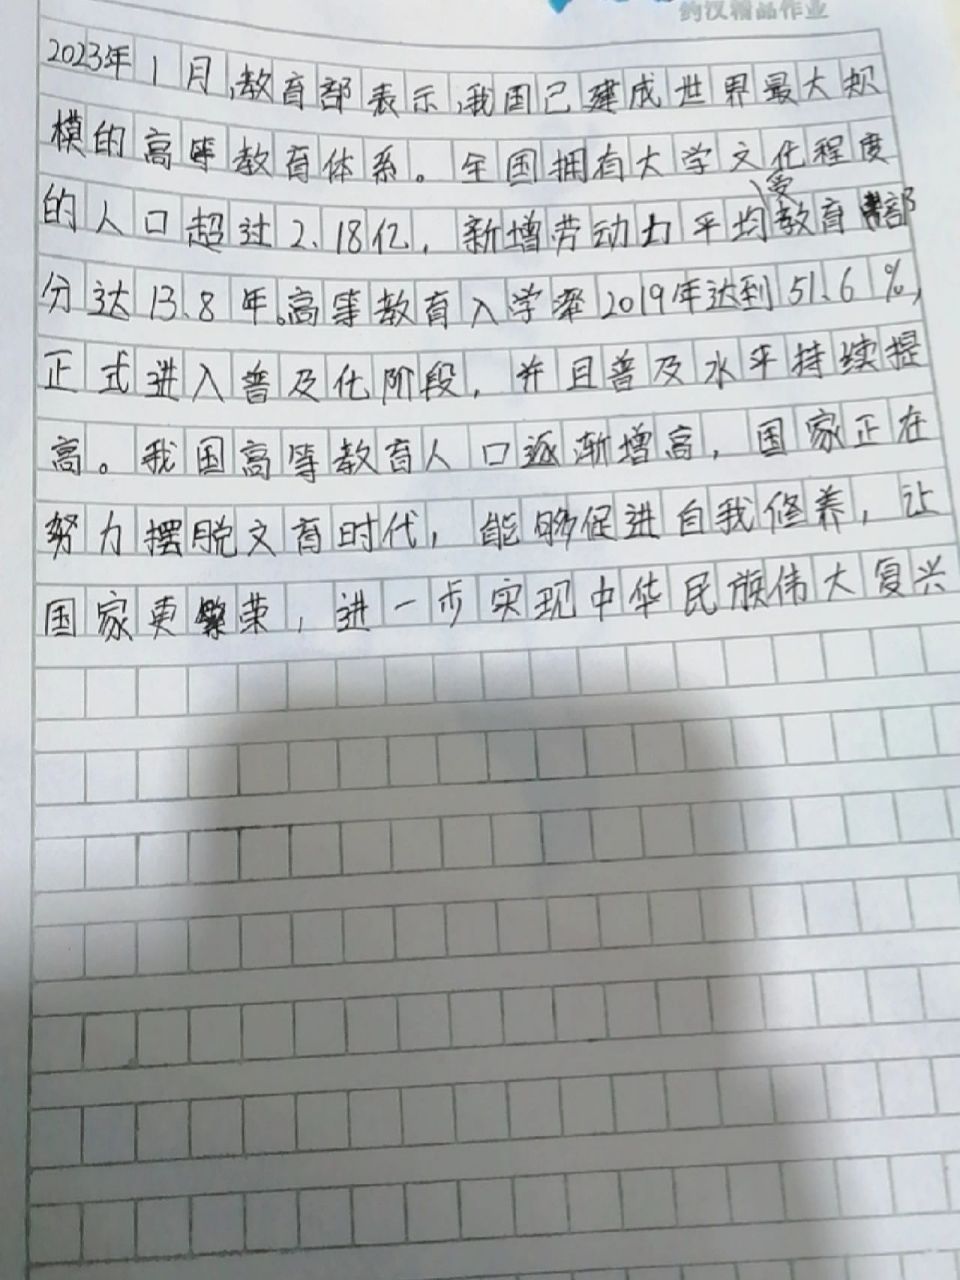 约汉精品作业
2023年1月,教育部表示,我国已建成世界最大规
模的高等教育体系。全国拥有大学文化程度
的人口超过2.18亿,新增劳动力平均受教育部
分达13.8年。高等教育入学率2019年达到51.6%,
正式进入普及化阶段,并且普及水平持续提
高。我国高等教育人口逐渐增高,国家正在
努力摆脱文育时代,能够促进自我修养,让
国家更繁荣,进一步实现中华民族伟大复兴